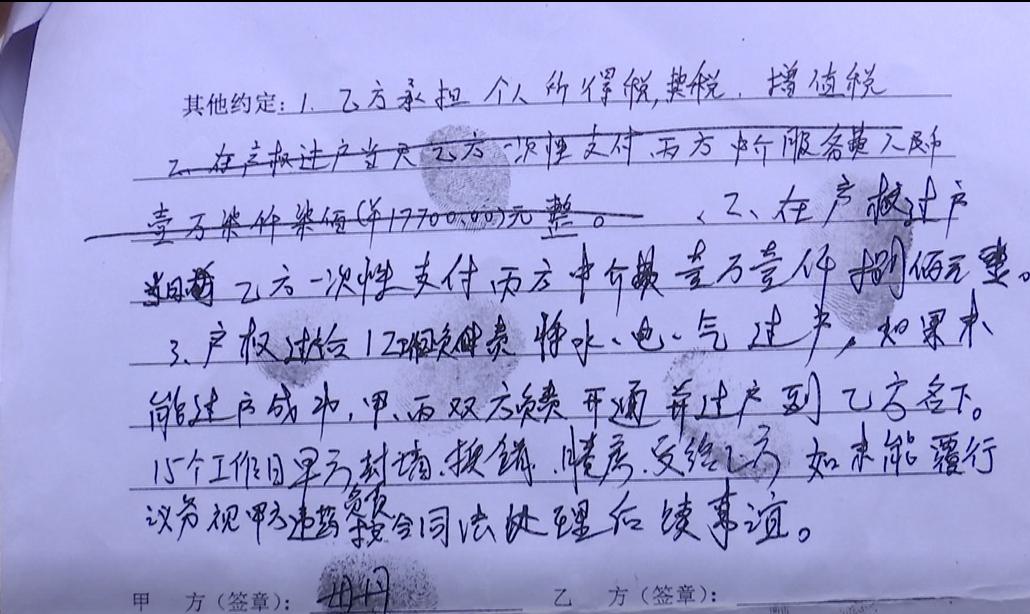 其他约定：1、乙方承担个人所得税，契税、增值税
2、在产权过户当天乙方一次性支付丙方中介服务费人民币
壹万柒仟柒佰(¥17700.00)元整。 、2、在产权过户
当日 乙方一次性支付丙方中介费壹万壹仟捌佰元整。
3、产权过给 负责将水、电、气过户，如果未
能过户成功，甲、丙双方负责开通并过户到乙方名下。
15个工作日甲方封墙、换锁、腾房、交给乙方 如未能覆行
议务视甲方违约负责按合同法处理后续事谊。
甲 方（签章）： 乙 方（签章）：